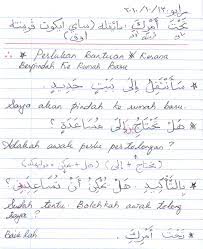 رابو، ٢٠١٠/١٠/١٣
تَحْتَ أَمْرِكَ:
∴ * Perlukan Bantuan * Kerana
Berpindah Ke Rumah Baru
سَأَنْتَقِلُ إِلَى بَيْتٍ جَدِيدٍ.
Saya akan pindah ke rumah baru.
* هَلْ تَحْتَاجُ إِلَى مُسَاعَدَةٍ؟
Adakah awak perlu pertolongan?
* بِالتَّأْكِيدِ. هَلْ يُمْكِنُ أَنْ تُسَاعِدَنِي؟
Sudah tentu. Bolehkah awak tolong
saya?
* تَحْتَ أَمْرِكَ.
Baiklah